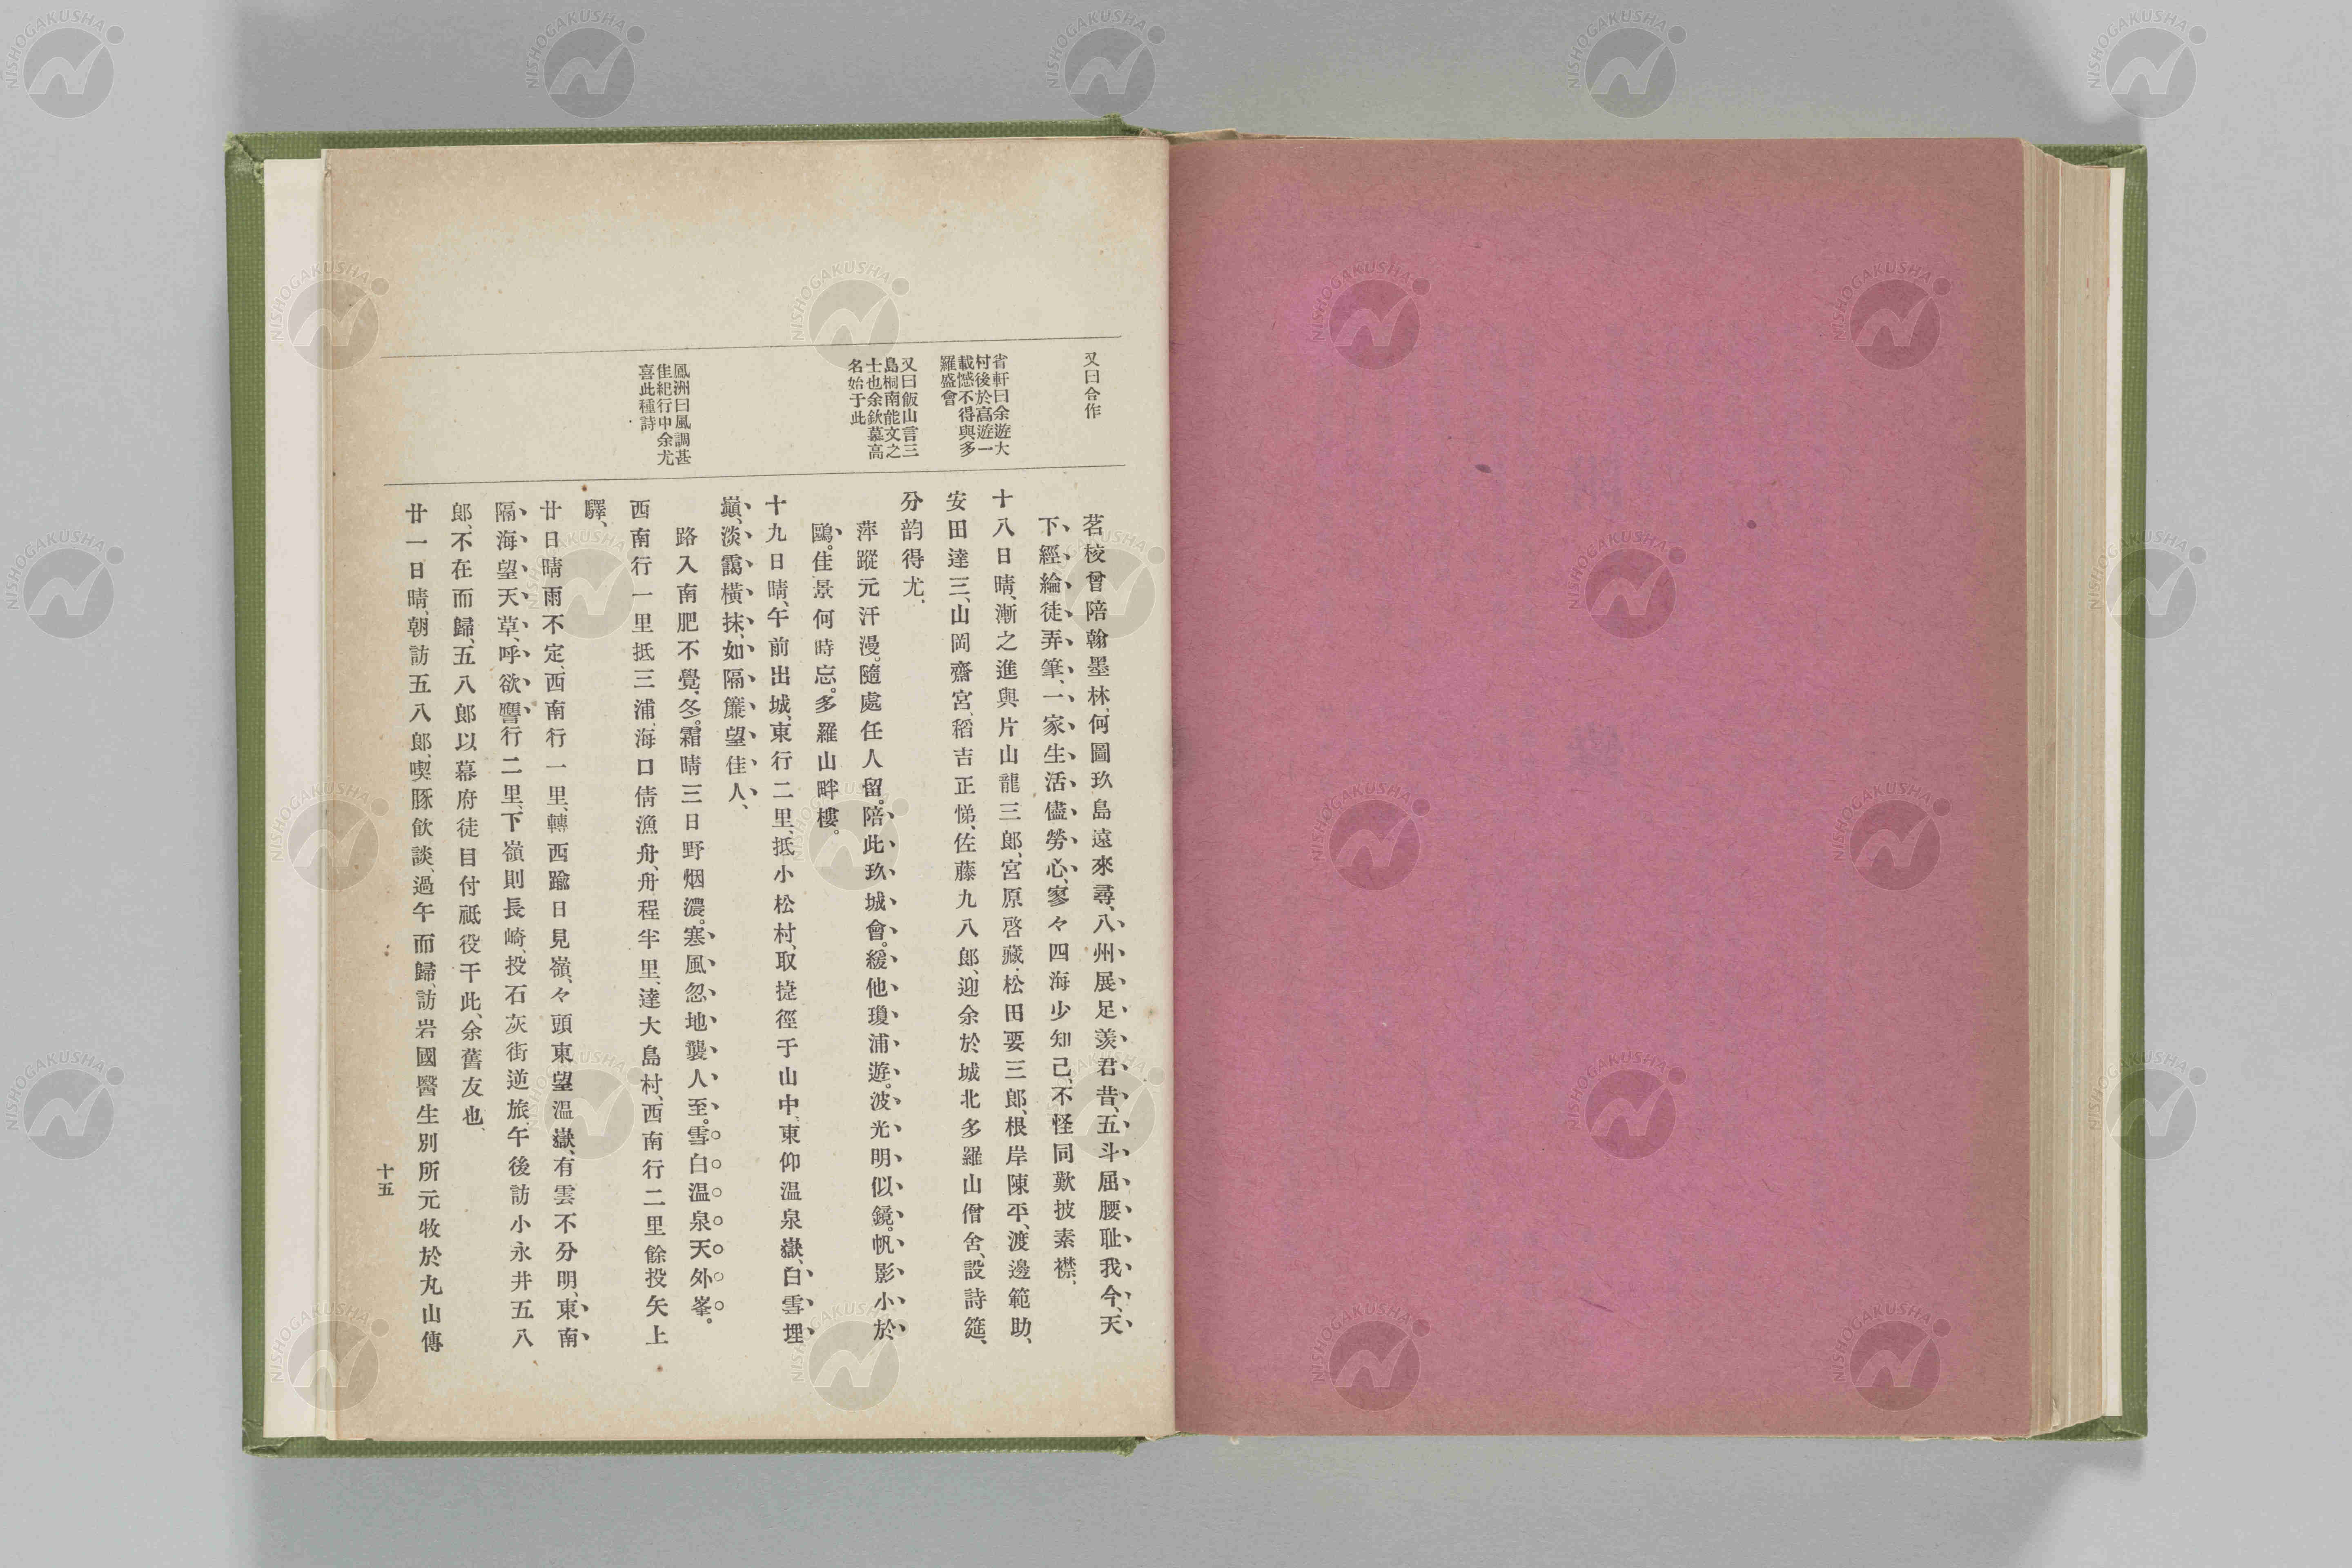 又曰合作
省軒曰余遊大
村後於高遊一
載憾不得與多
羅盛會
又曰飯山言三
島桐南能文之
士也余欽慕高
名始于此
鳳洲曰風調甚
佳紀行中余尤
喜此種詩
茗棱曾陪翰墨林、何圖玖島遠來尋、八州展足羨君昔、五斗屈腰耻我今、天
下經綸徒弄筆、一家生活儘勞心、寥々四海少知己、不怪同歎披素襟、
十八日晴、漸之進與片山龍三郎、宮原啓藏、松田要三郎、根岸陳平、渡邊範助、
安田達三、山岡齋宮、稻吉正悌、佐藤九八郎、迎余於城北多羅山僧舍、設詩筵、
分韵得尤、
萍蹤元汗漫。隨處任人留。陪此玖城會。緩他瓊浦遊。波光明似鏡。帆影小於
鷗。佳景何時忘。多羅山畔樓。
十九日晴、午前出城、東行二里、抵小松村、取捷徑于山中、東仰温泉嶽、白雪埋
巓、淡靄橫抹、如隔簾望佳人、
路入南肥不覺、冬。霜晴三日野烟濃。寒風忽地襲人至。雪白温泉天外峯。
西南行一里抵三浦、海口倩漁舟、舟程半里、達大島村、西南行二里餘投矢上
驛、
廿日晴雨不定、西南行一里、轉西踰日見嶺、々頭東望温嶽、有雲不分明、東南
隔海望天草、呼欲譍行二里、下嶺則長崎、投石灰街逆旅、午後訪小永井五八
郎、不在而歸、五八郎以幕府徒目付祗役于此、余舊友也、
廿一日晴、朝訪五八郎、喫豚飲談、過午而歸、訪岩國醫生別所元牧於丸山傳
十五
NISHOGAKUSHA